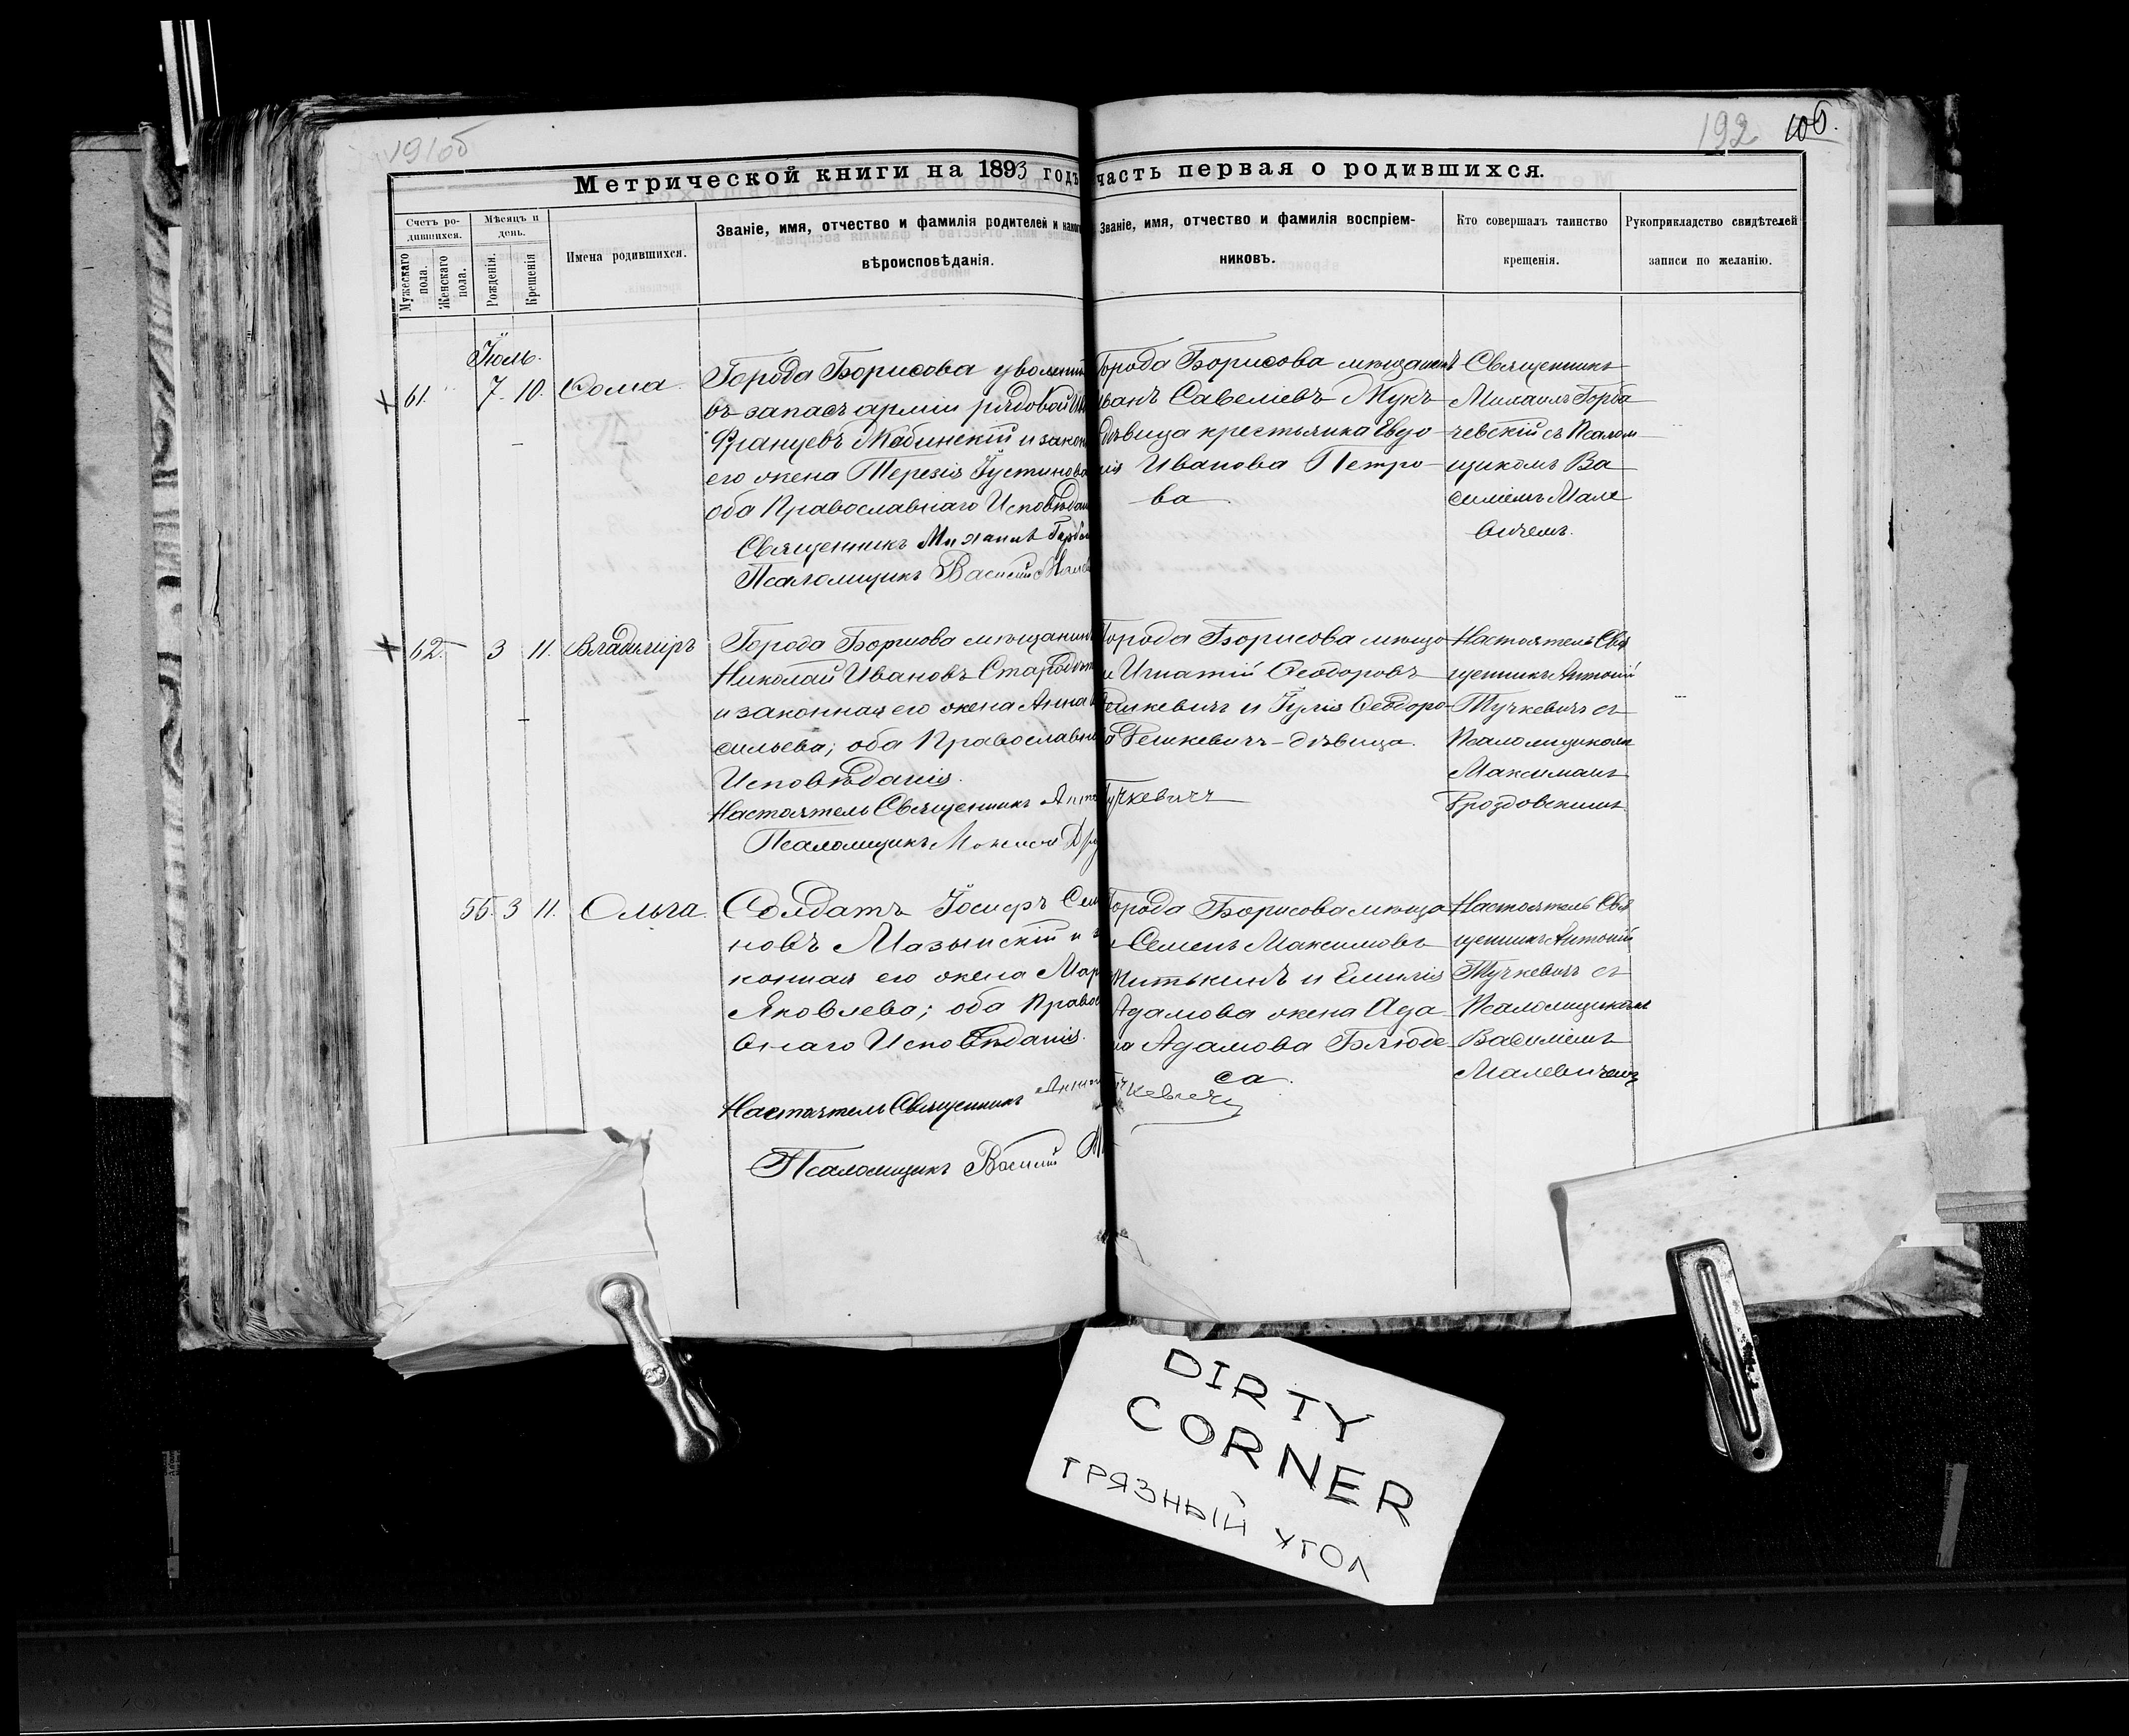 191об
192 106.
Метрической книги на 1893 годъ часть первая о родившихся.
Счетъ родившихся.
Мужескаго пола.
Женскаго пола.
Мѣсяцъ и день.
Рожденія.
Крещенія
Имена родившихся.
Званіе, имя, отчество и фамилія родителей и какого
вѣроисповѣданія.
Званіе, имя, отчество и фамилія воспріем-
никовъ.
Кто совершалъ таинство
крещенія.
Рукоприкладство свидѣтелей
записи по желанію.
Іюль.
61. 7 10. Ѳома
Города Борисова уволенный
въ запасъ арміи рядовой
Францевъ и закон
его жена Терезія Іустинова
оба Православнаго Исповѣдан
Священникъ Михаилъ Горба
Псаломщикъ Василій Малев
Города Борисова мѣщанинъ
Иванъ Савеліевъ Жукъ
дѣвица крестьянка Евдо-
кія Иванова Петро-
ва
Священникъ
Михаилъ Горба
чевскій съ Псалом
щикомъ Ва
силіемъ Мале
вичемъ.
62. 3 11. Владиміръ
Города Борисова мѣщанинъ
Николай Ивановъ
и законная его жена Анна Ва
сильева; оба Православн
Исповѣданія.
Настоятель Священникъ Анто Тучкевичъ
Псаломщикъ Максим Дро
Города Борисова мѣща
е Игнатій Ѳеодоровъ
Решкевичъ и Іулія Ѳеодоро
ва Решкевичъ - дѣвица.
Настоятель Свя
щенникъ Антоній
Тучкевичъ съ
Псаломщикомъ
Максимомъ
Дроздовскимъ
55. 3 11. Ольга.
Солдатъ Іосифъ Сем
новъ Мазынскій и за
конная его жена Мар
Яковлева; оба Правосл
внаго Исповѣданія.
Настоятель Священникъ Антоній Тучкевичъ
Псаломщикъ Василій М
Города Борисова мѣща
е Семенъ Максимовъ
Митькинъ и Емилія
Адамова жена Ада
ма Адамова Блюде
са.
Настоятель Свя
щенникъ Антоній
Тучкевичъ съ
Псаломщикомъ
Василіемъ
Малевичемъ
DIRTY
CORNER
ГРЯЗНЫЙ УГОЛ